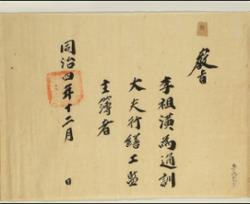 敎旨
李祖潢爲通訓
大夫行繕工監
主簿者
同治四年十二月 日